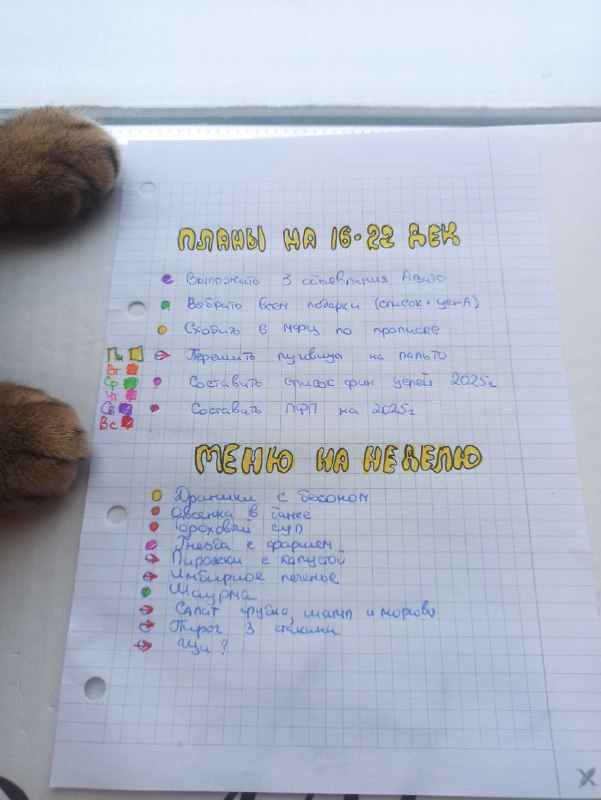 ПЛАНЫ НА 16-22 ДЕК
Выложить 3 объявления Авито
Выбрать всем подарки (список + ценА)
Сходить в МФЦ по прописке
Пн
Перешить пуговицы на пальто
Вт
Ср
Составить список фин целей 2025г
Чт
Сб
Составить ЛФП на 2025г
Вс
МЕНЮ НА НЕДЕЛЮ
Драники с беконом
Овсянка в банке
Гороховый суп
Гнезда с фаршем
Пирожки с капустой
Имбирное печенье
Шаурма
Салат грудка, шамп и морковь
Пирог 3 стакана
Щи ?